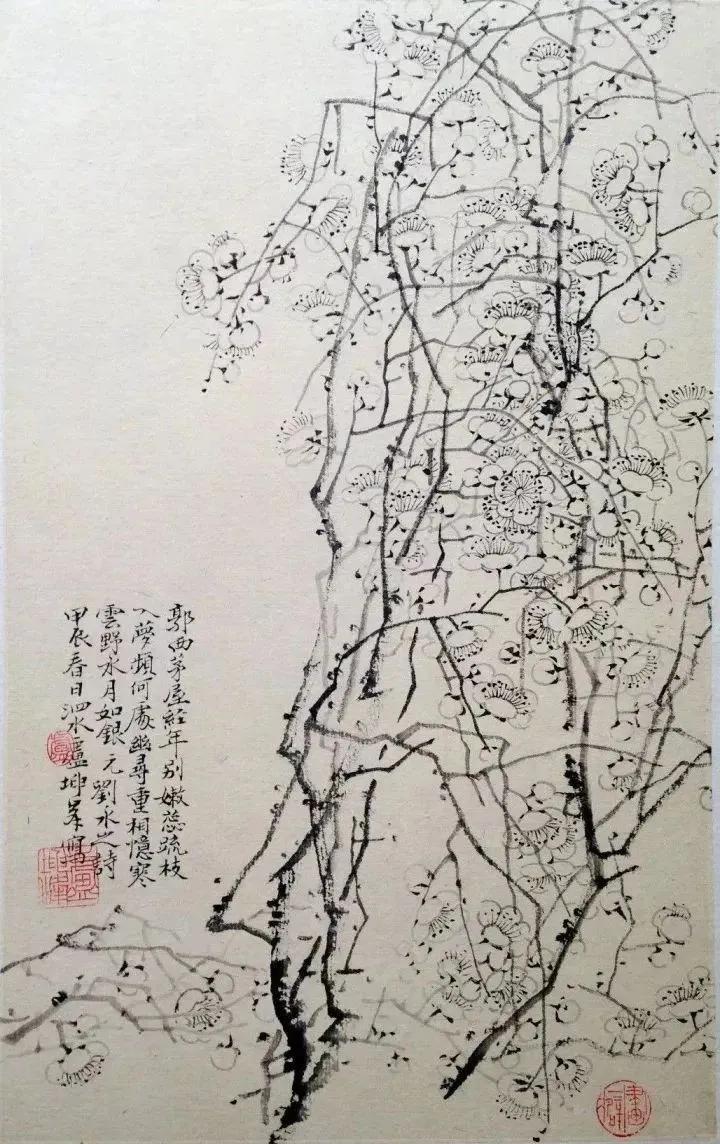 郭西茅屋經年別嫩蕊疏枝
入夢頻何處幽尋重相憶寒
雲野水月如銀元劉永之詩
甲辰春日泗水盧坤峯寫